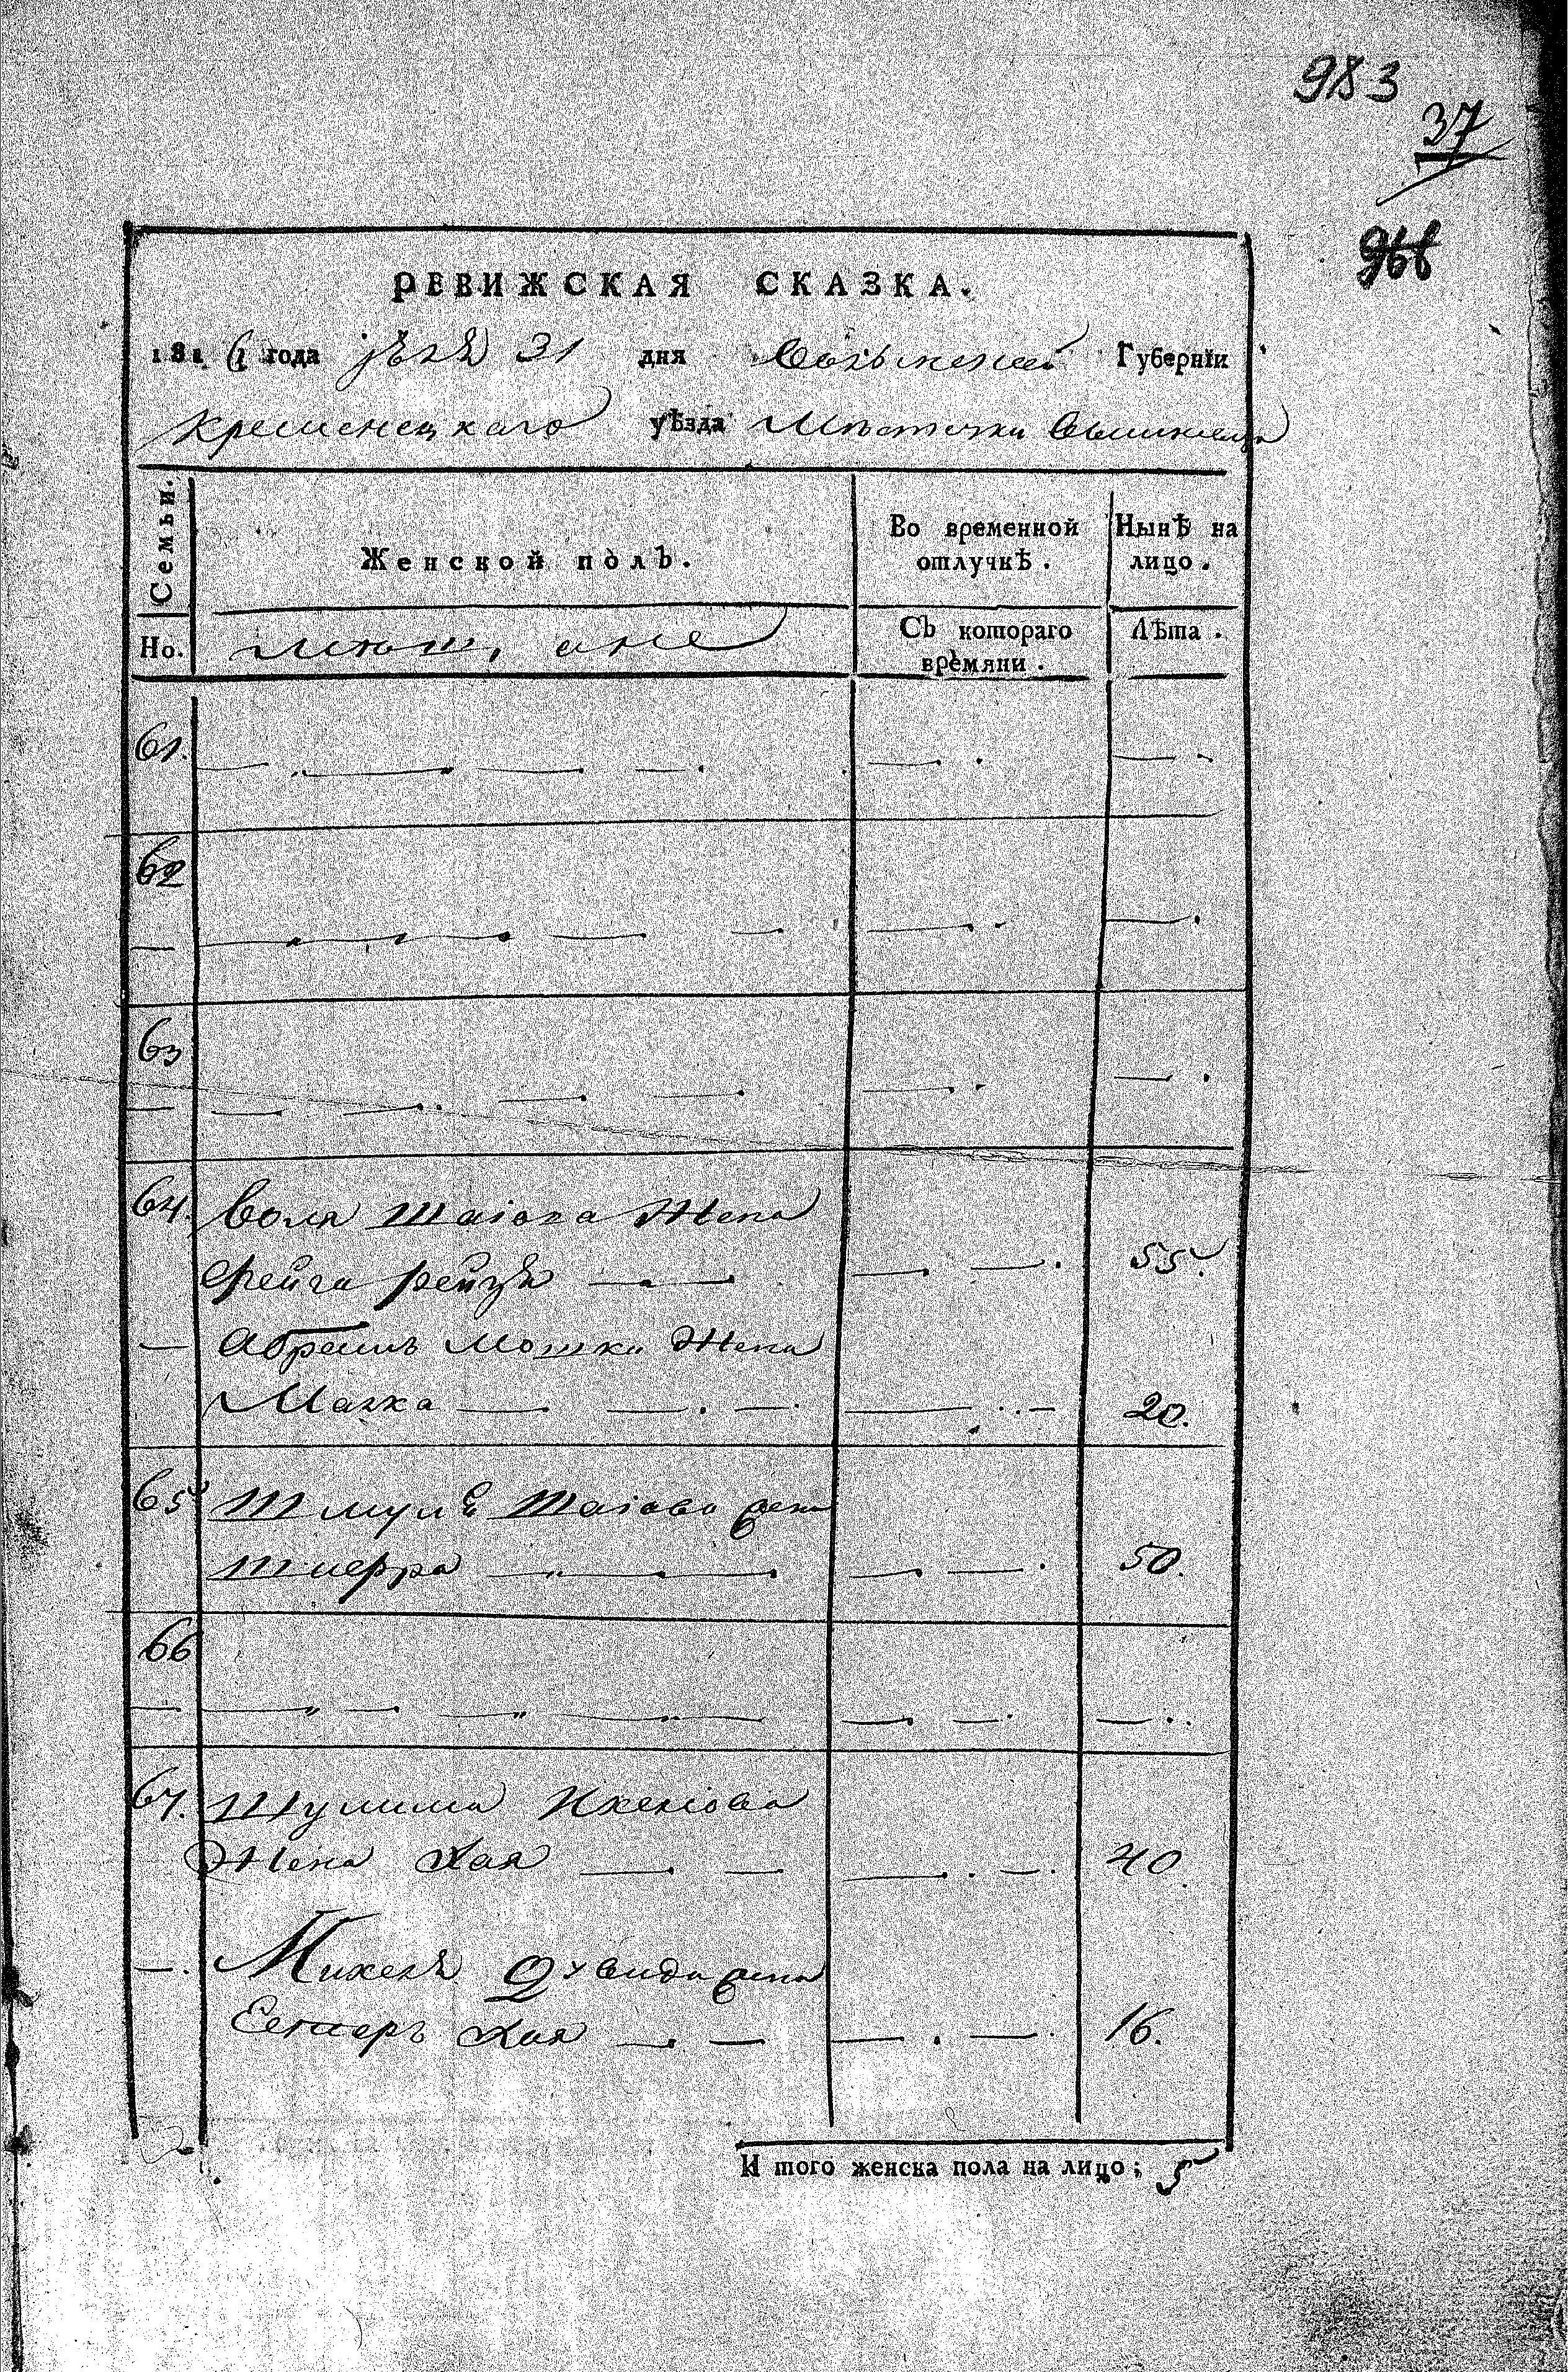 983
37
966
РЕВИЖСКАЯ СКАЗКА.
1816 года 31 дня Волынской Губернїи
Кременецкаго уѣзда Мѣстечки
Семьи. Женской полЪ. Во временной отлучкѣ. Нынѣ на лицо.
Но. СЪ котораго времяни. Лѣта.
61.
62
63
64. Воля Шаiова Жена
Фейга рейзя 55.
Абрамъ Мошки Жена
Малка 20.
65 Шмуль Шаiово жена
Шифра 50.
66
67. Шулима
Жена Хая 40
Михель жена
Естеръ Хая 16.
И того женска пола на лицо; 5